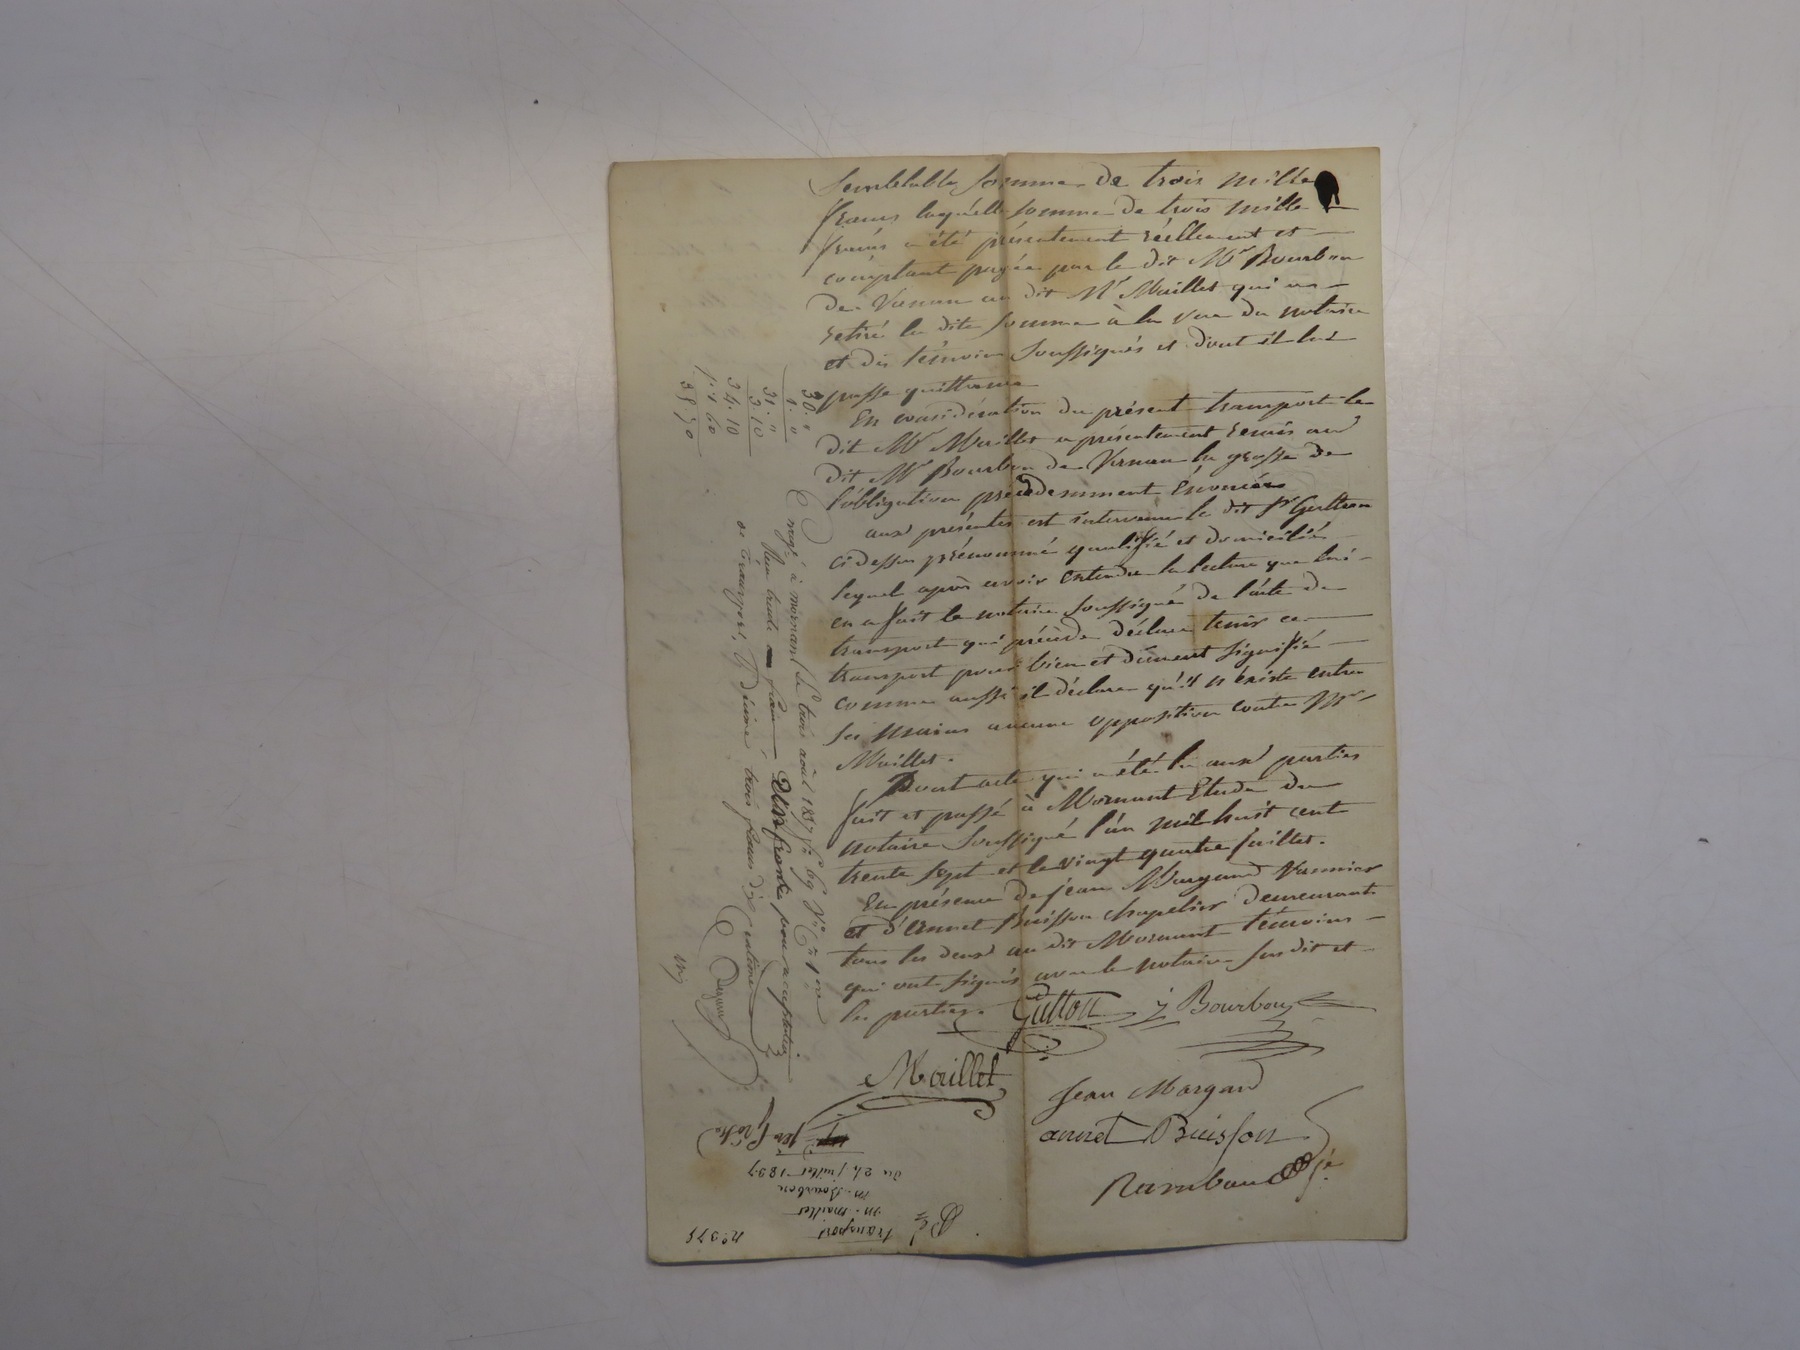 Semblable somme de trois mille
francs laquelle somme de trois mille
francs a été présentement réellement et
comptant payée par le dit Mr Bourbon
de Vernan au dit Mr Maillet qui a
retiré la dite somme à la vue du notaire
et des témoins soussignés et dont il lui
passe quittance
En considération du présent transport le
dit Mr Maillet a présentement remis au
dit Mr Bourbon de Vernan la grosse de
l'obligation précédemment énoncée
aux présentes est intervenu le dit Sr Guttton
ci dessus prénommé qualifié et domicilié
lequel après avoir entendu la lecture que lui
en a fait le notaire soussigné de l'acte de
transport qui précède déclare tenir ce
transport pour bien et dûment signifié
comme aussi il déclare qu'il n'existe entre
ses mains aucune opposition contre Mr
Maillet.
Dont acte qui a été lu aux parties
fait et passé à Mornant Etude du
notaire soussigné l'an mil huit cent
trente sept et le vingt quatre juillet.
En présence de jean Margand Vannier
et d'Annet Buisson chapelier demeurant
tous les deux au dit Mornant témoins
qui ont signés avec le notaire susdit et
les parties.
Gutton
j Bourbon
Maillet
Jean Margand
annet Buisson
Rambaud
30. "
1. "
31. "
3.10
34.10
1.60
35.70
Enregé à mornant le trois août 1837 fo 69 Vo Cn 1 re
Reçu trente francs Un franc pour acceptation
de transport, & dixième trois francs dix centimes
1re Grosse
Ré
transport
m. maillet
m. Bourbon
du 24 juillet 1837
no 375